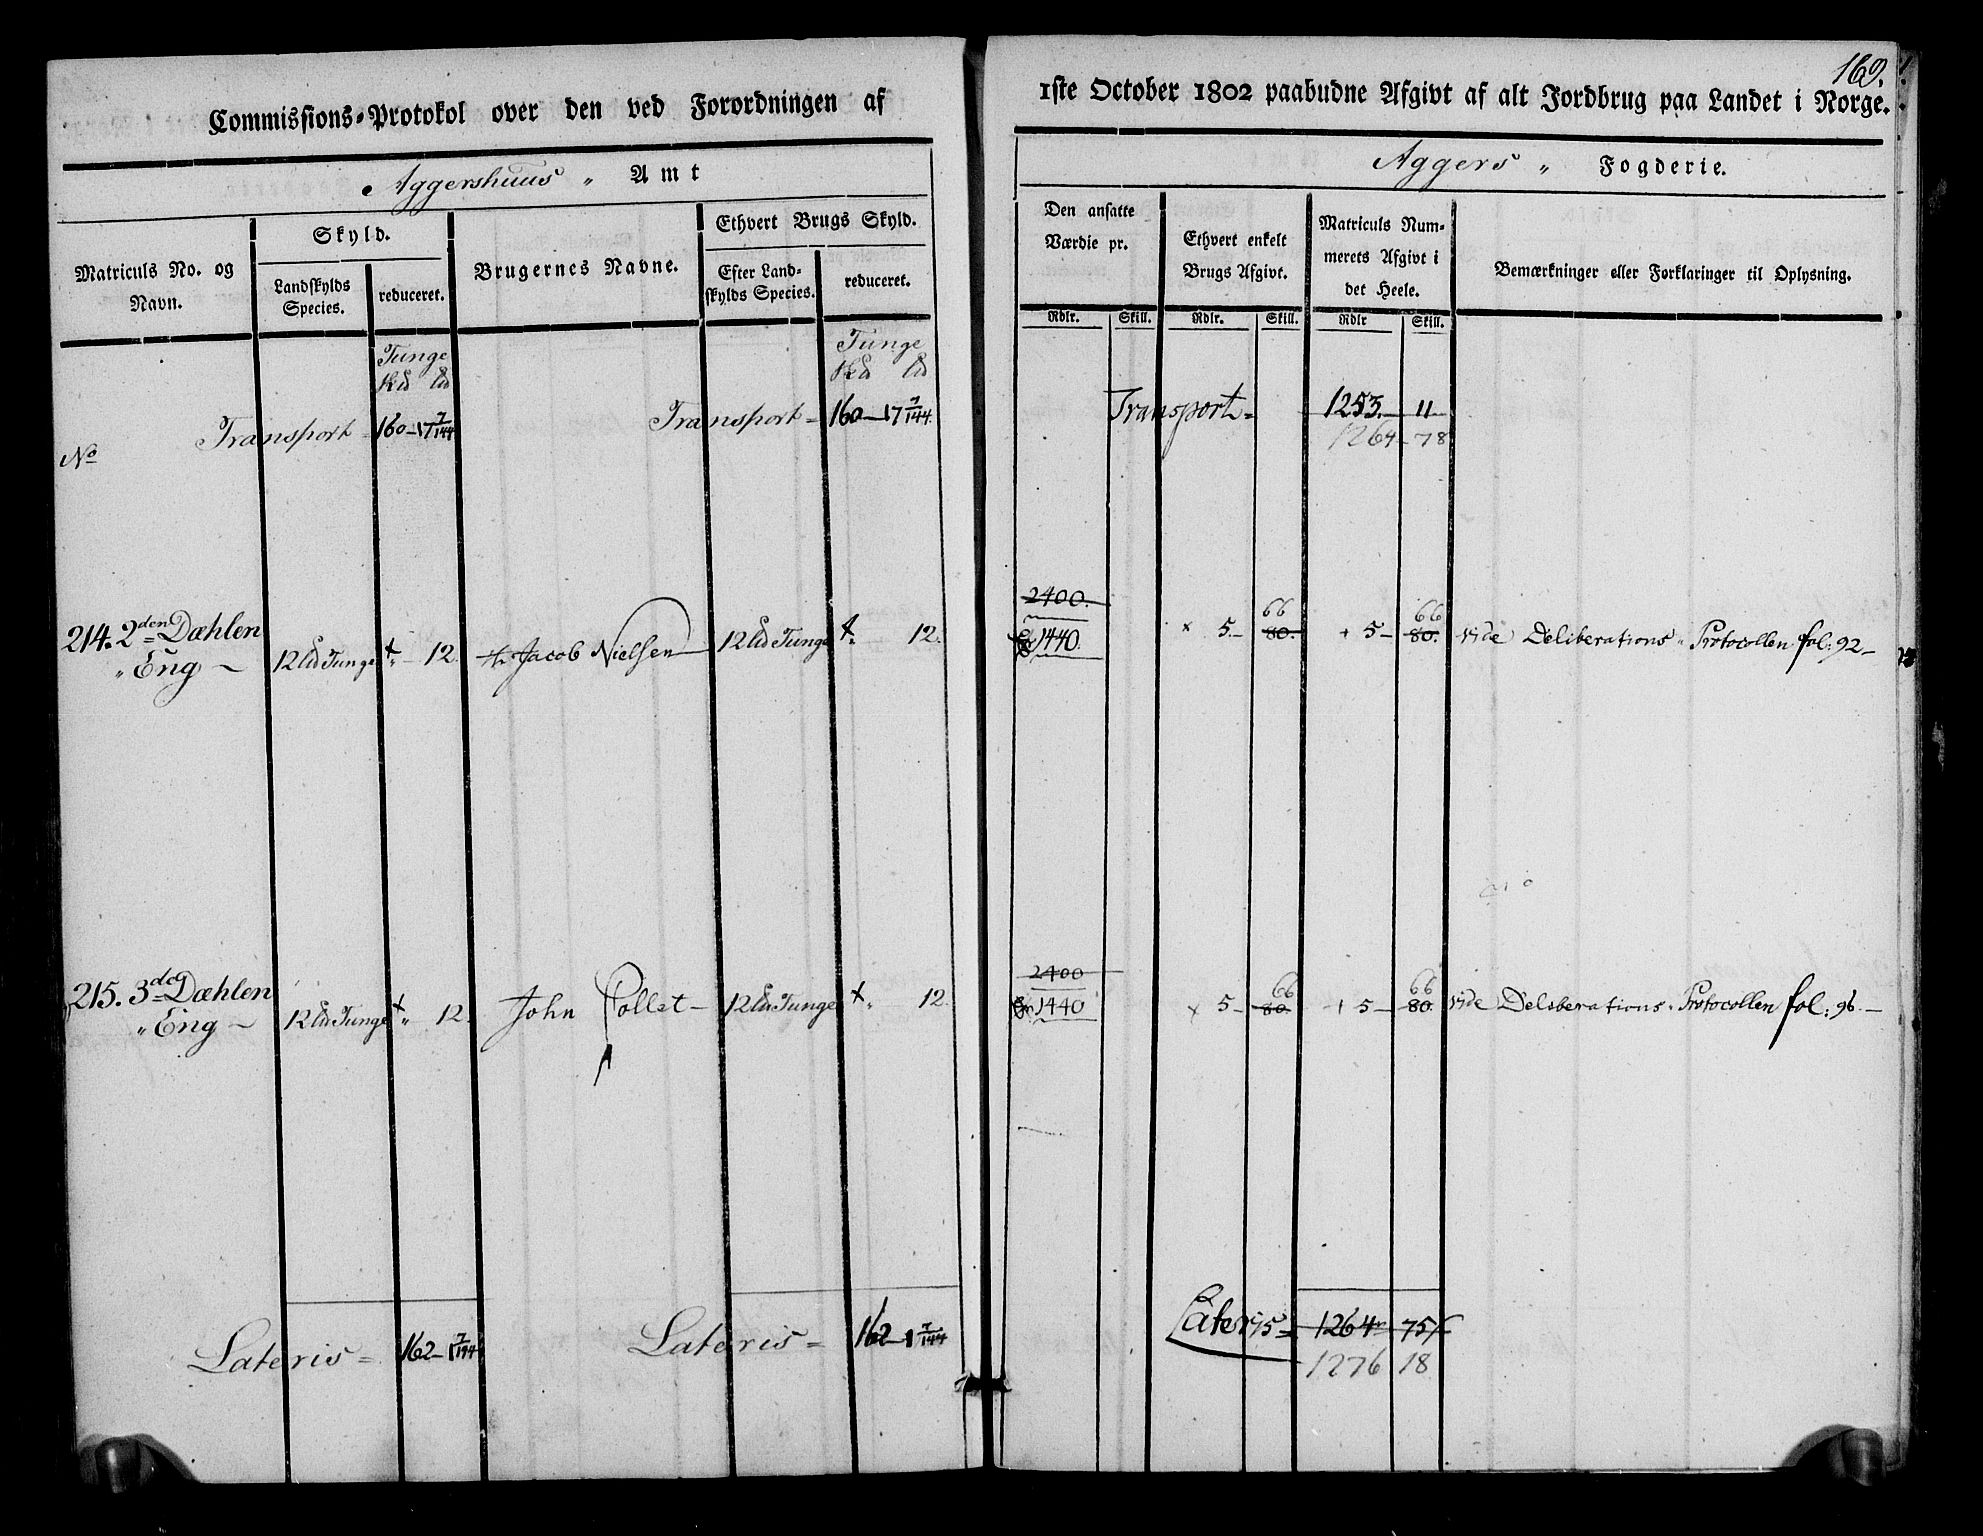 169.
Commissions-Protokol over den ved Forordningen af
1ste October 1802 paabudne Afgivt af alt Jordbrug paa Landet i Norge.
Aggershuus „ Amt
Aggers „ Fogderie.
Matriculs No. og Navn.
Skyld.
Landskylds Species.
reduceret.
Brugernes Navne.
Ethvert Brugs Skyld.
Efter Landskylds Species.
reduceret.
Den ansatte Værdie pr.
Ethvert enkelt Brugs Afgivt.
Matriculs Nummerets Afgivt i det Heele.
Bemærkninger eller Forklaringer til Oplysning.
Rdlr. Skill. Rdlr. Skill. Rdlr Skill.
Tunge
Tunge
No
Transport = 160 – 17 7/144
Transport = 160 – 17 7/144.
Transport = 1253. – 11
1264 – 78
2400.
66 66
214. 2den Dæhlen 12 Tunge 12. Jacob Nielsen 12 Tunge 12. 1440. 5. – 80. 5 – 80. vide Deliberations Protocollen fol: 92 –
„ Eng –
2400
66 66
215. 3de Dæhlen 12 Tunge 12. John Collet – 12 Tunge 12. 1440 5 – 80. 5 – 80. vide Deliberations Protocollen fol: 96. –
„ Eng –
Lateris = 162 – 1 7/144
Lateris = 162 – 1 7/144
Lateris = 1264 75
1276 18